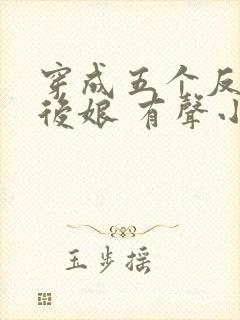 穿成五个反
後娘 有聲小
玉步摇